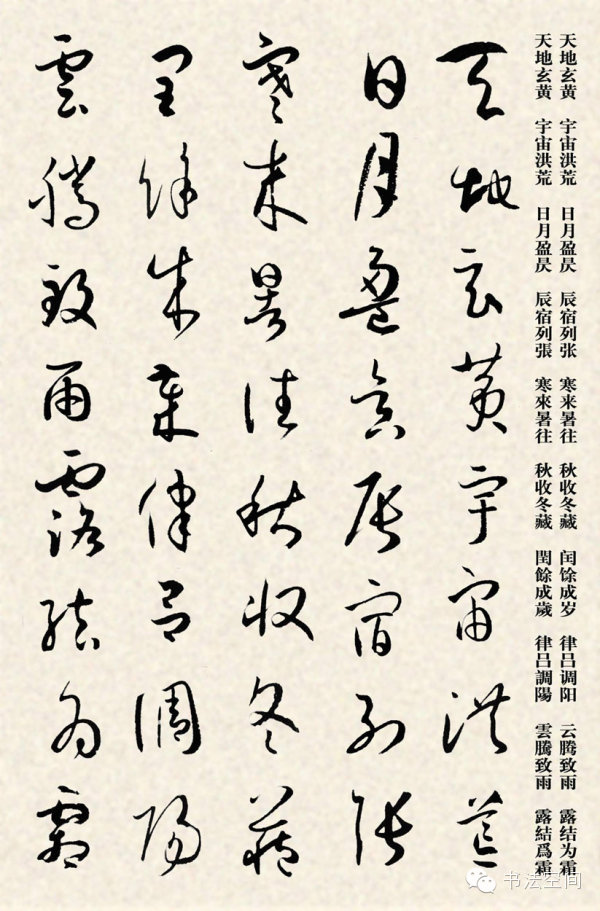 天地玄黄 宇宙洪荒 日月盈昃 辰宿列张 寒来暑往 秋收冬藏 闰馀成岁 律吕调阳 云腾致雨 露结为霜
天地玄黄 宇宙洪荒 日月盈昃 辰宿列張 寒來暑往 秋收冬藏 閏餘成歲 律呂調陽 雲騰致雨 露結爲霜
天地玄黄宇宙洪荒
日月盈昃辰宿列張
寒来暑往秋收冬藏
閏餘成歲律吕調陽
雲騰致雨露結为霜
书法空间